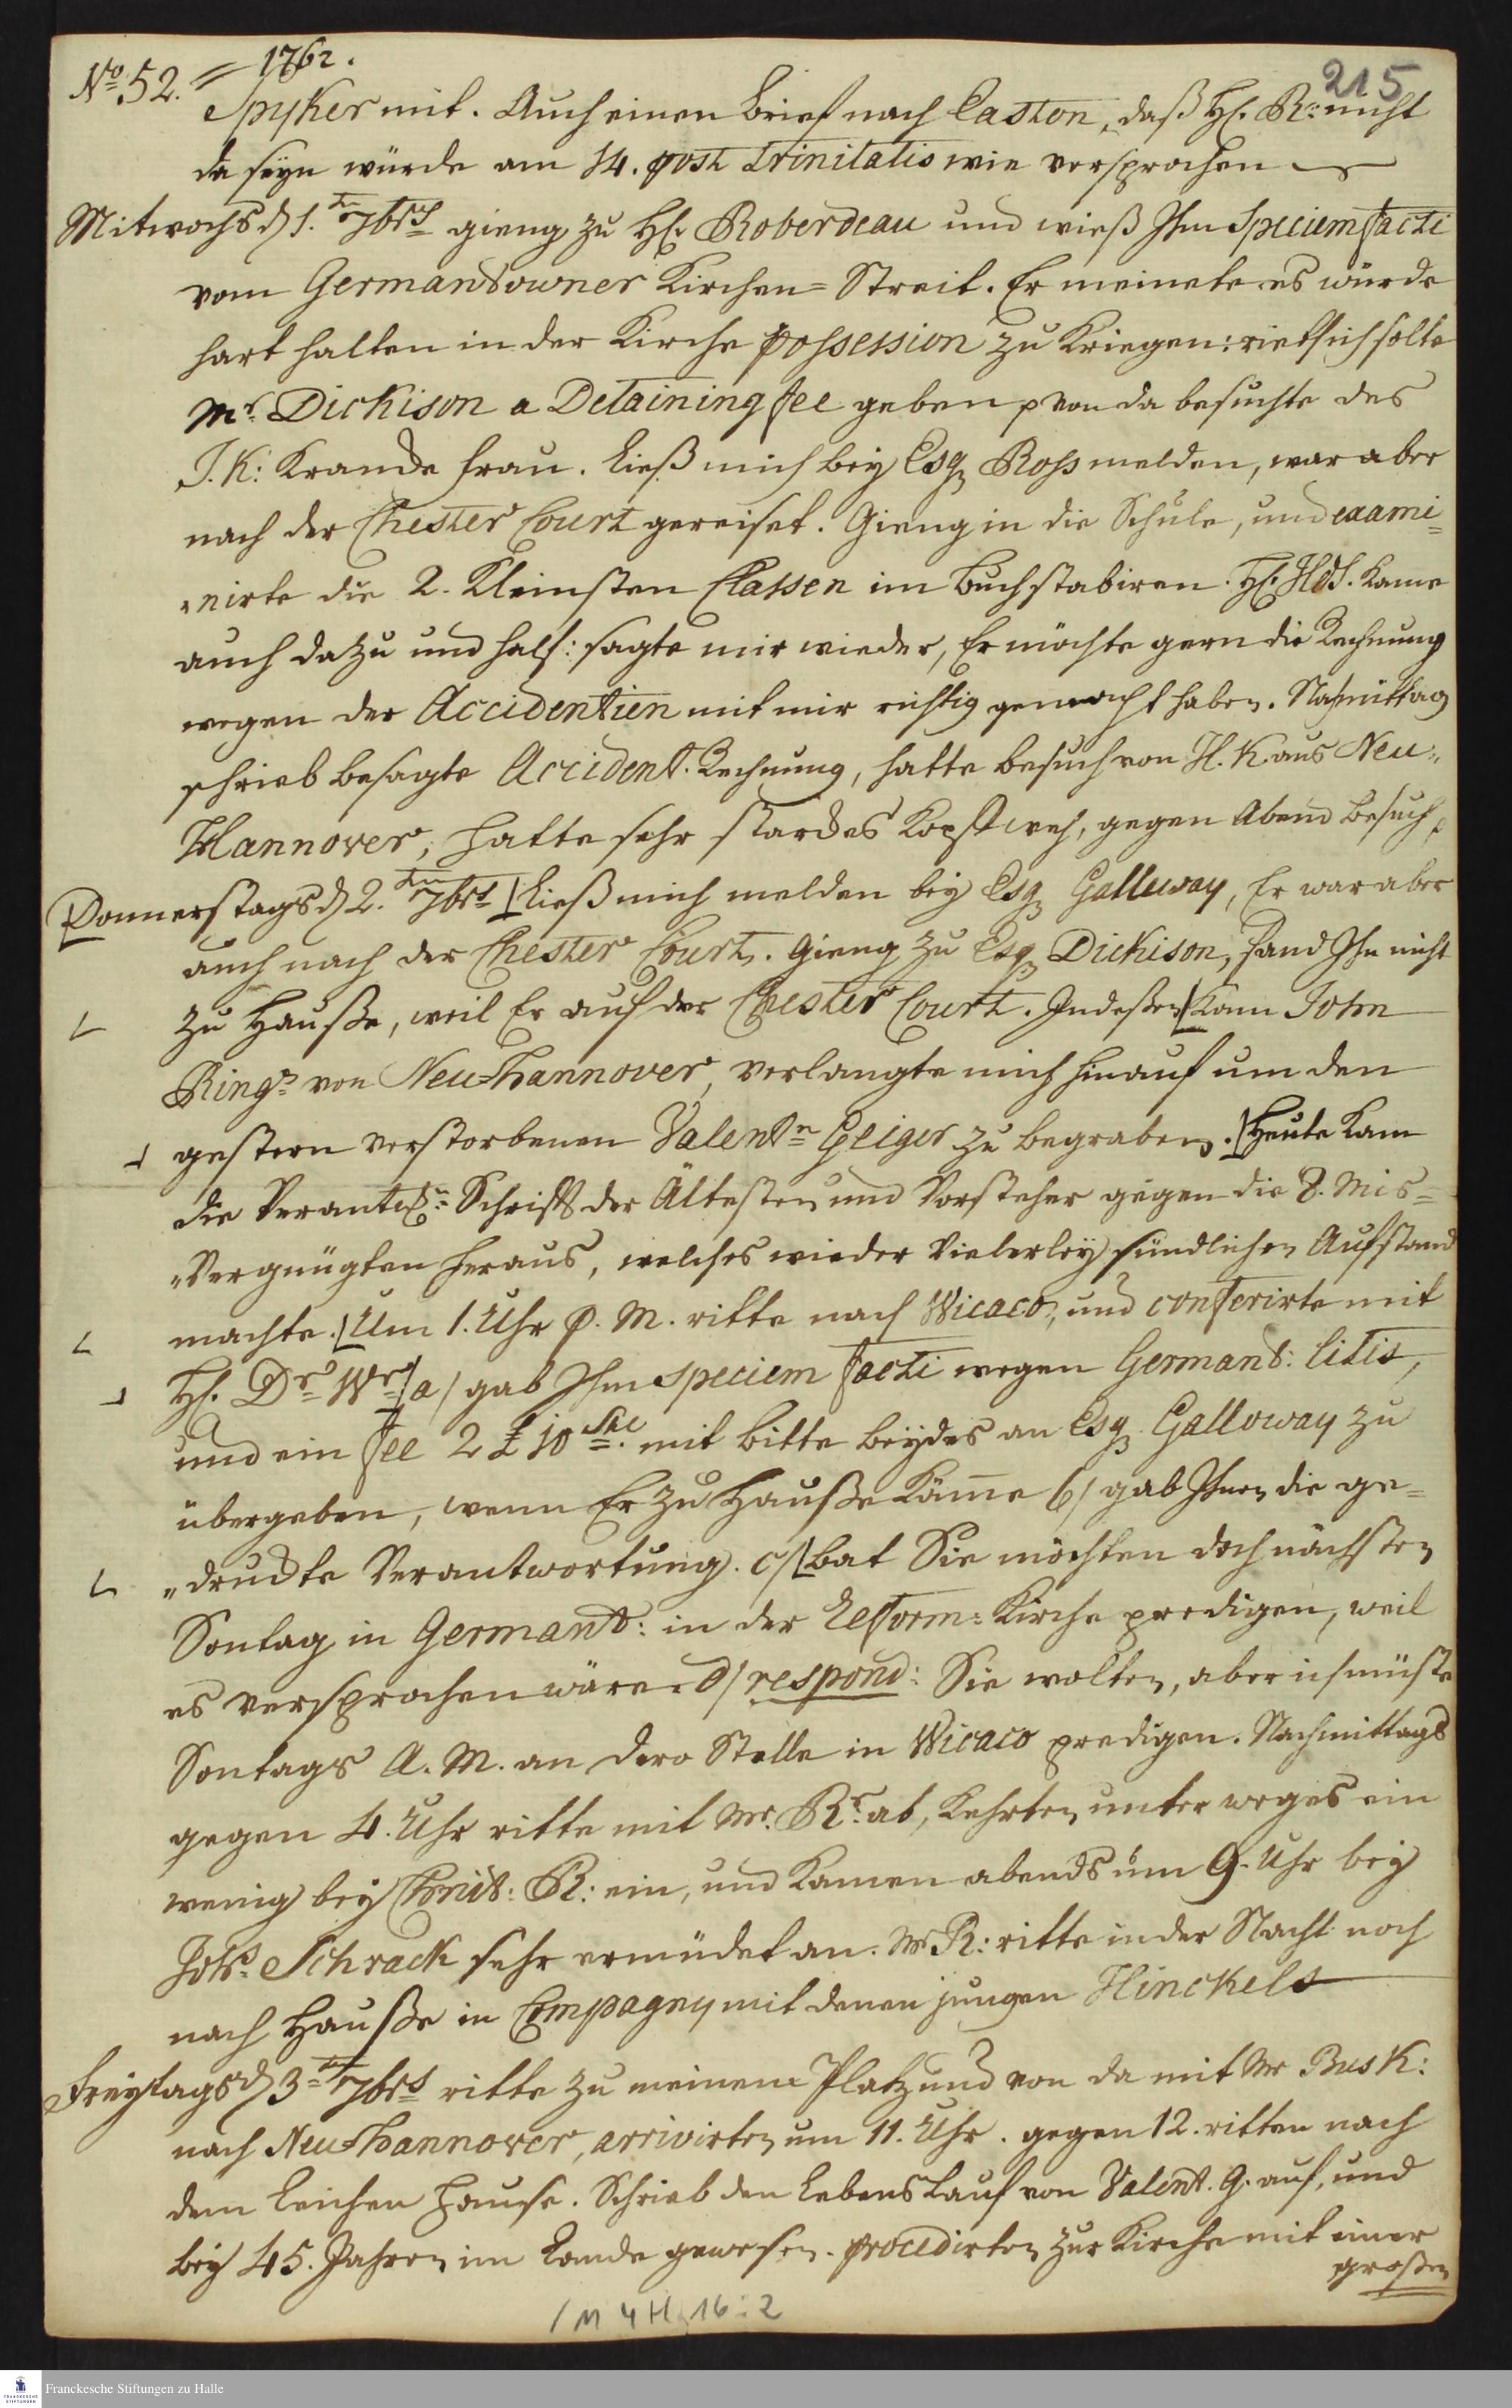 No. 52. = 1762.
215
Spyker mit. Auch einen brief nach Easton, daß H. R: nicht
da seyn würde am 14. post Trinitatis wie versprochen
Mitwochs d 1.ten 7brs gieng zu H. Roberdeau und wieß Ihm Speciem facti
vom Germantowner Kirchen=Streit. Er meinete es würde
hart halten in der Kirche possession zu kriegen: rieth ich solte
Mr. Dickison a Detaining fee geben p von da besuchte des
J. K: krancke frau. ließ mich bey Esqr Ross melden, war aber
nach der Chester Court gereiset. Gieng in die Schule, und exami=
nirte die 2. kleinsten Classen im buchstabiren. H. Hds. kame
auch dazu und half: sagte mir wieder, Er möchte gern die Rechnung
wegen der Accidentien mit mir richtig gemacht haben. Nachmittag
schrieb besagte Accident. Rechnung, hatte besuch von H. K. aus Neu
Hannover, hatte sehr starckes Kopfweh, gegen Abend besuch p
Donnerstags d 2.ten 7brs ließ mich melden bey Esqr Galloway, Er war aber
auch nach der Chester Court. gieng zu Esqr Dickison, fand Ihn nicht
zu Hauße, weil Er auf der Chester Court. Indeßen kam John
Ringr von Neu=Hannover, verlangte mich hinauf um den
gestern verstorbenen Valentn Geiger zu begraben. Heute kam
die Verantw: Schrifft der Ältesten und Vorsteher gegen die 8. Mis=
Vergnügten heraus, welches wieder Vielerley sündlichen Aufstand
machte. Um 1. Uhr P. M. ritte nach Wicaco, und conferirte mit
H. Dr Wr a/ gab Ihm speciem facti wegen Germant: litis,
und ein fee 2 £ 10 Shl. mit bitte beydes an Esqr Galloway zu
übergeben, wenn Er zu Hauße käme b/ gab Ihnen die ge=
druckte Verantwortung. c/ bat Sie möchten doch nächsten
Sontag in Germant: in der Reform: Kirche predigen, weil
es versprochen wäre. d/ respond: Sie wolten, aber ich müste
Sontags A. M. an dero Stelle in Wicaco predigen. Nachmittags
gegen 4. Uhr ritte mit Mr. Rr. ab, kehrten unter weges ein
wenig bey R: ein, und kamen abends um 9. Uhr bey
Johs Schrack sehr ermüdet an. Mr R: ritte in der Nacht noch
nach Hauße in Compagny mit denen jungen Hinckels
Freytags d 3ten 7brs ritte zu meinem Platz und von da mit Mr Busk:
nach Neu=Hannover, arrivirten um 11. Uhr. gegen 12. ritten nach
dem Leichen Hause. Schrieb den Lebens Lauf von Valent. G. auf, und
bey 45. Jahren im Lande gewesen. procedirten zur Kirche mit einer
großen
/ M 4 H 16 : 2
Franckesche Stiftungen zu Halle